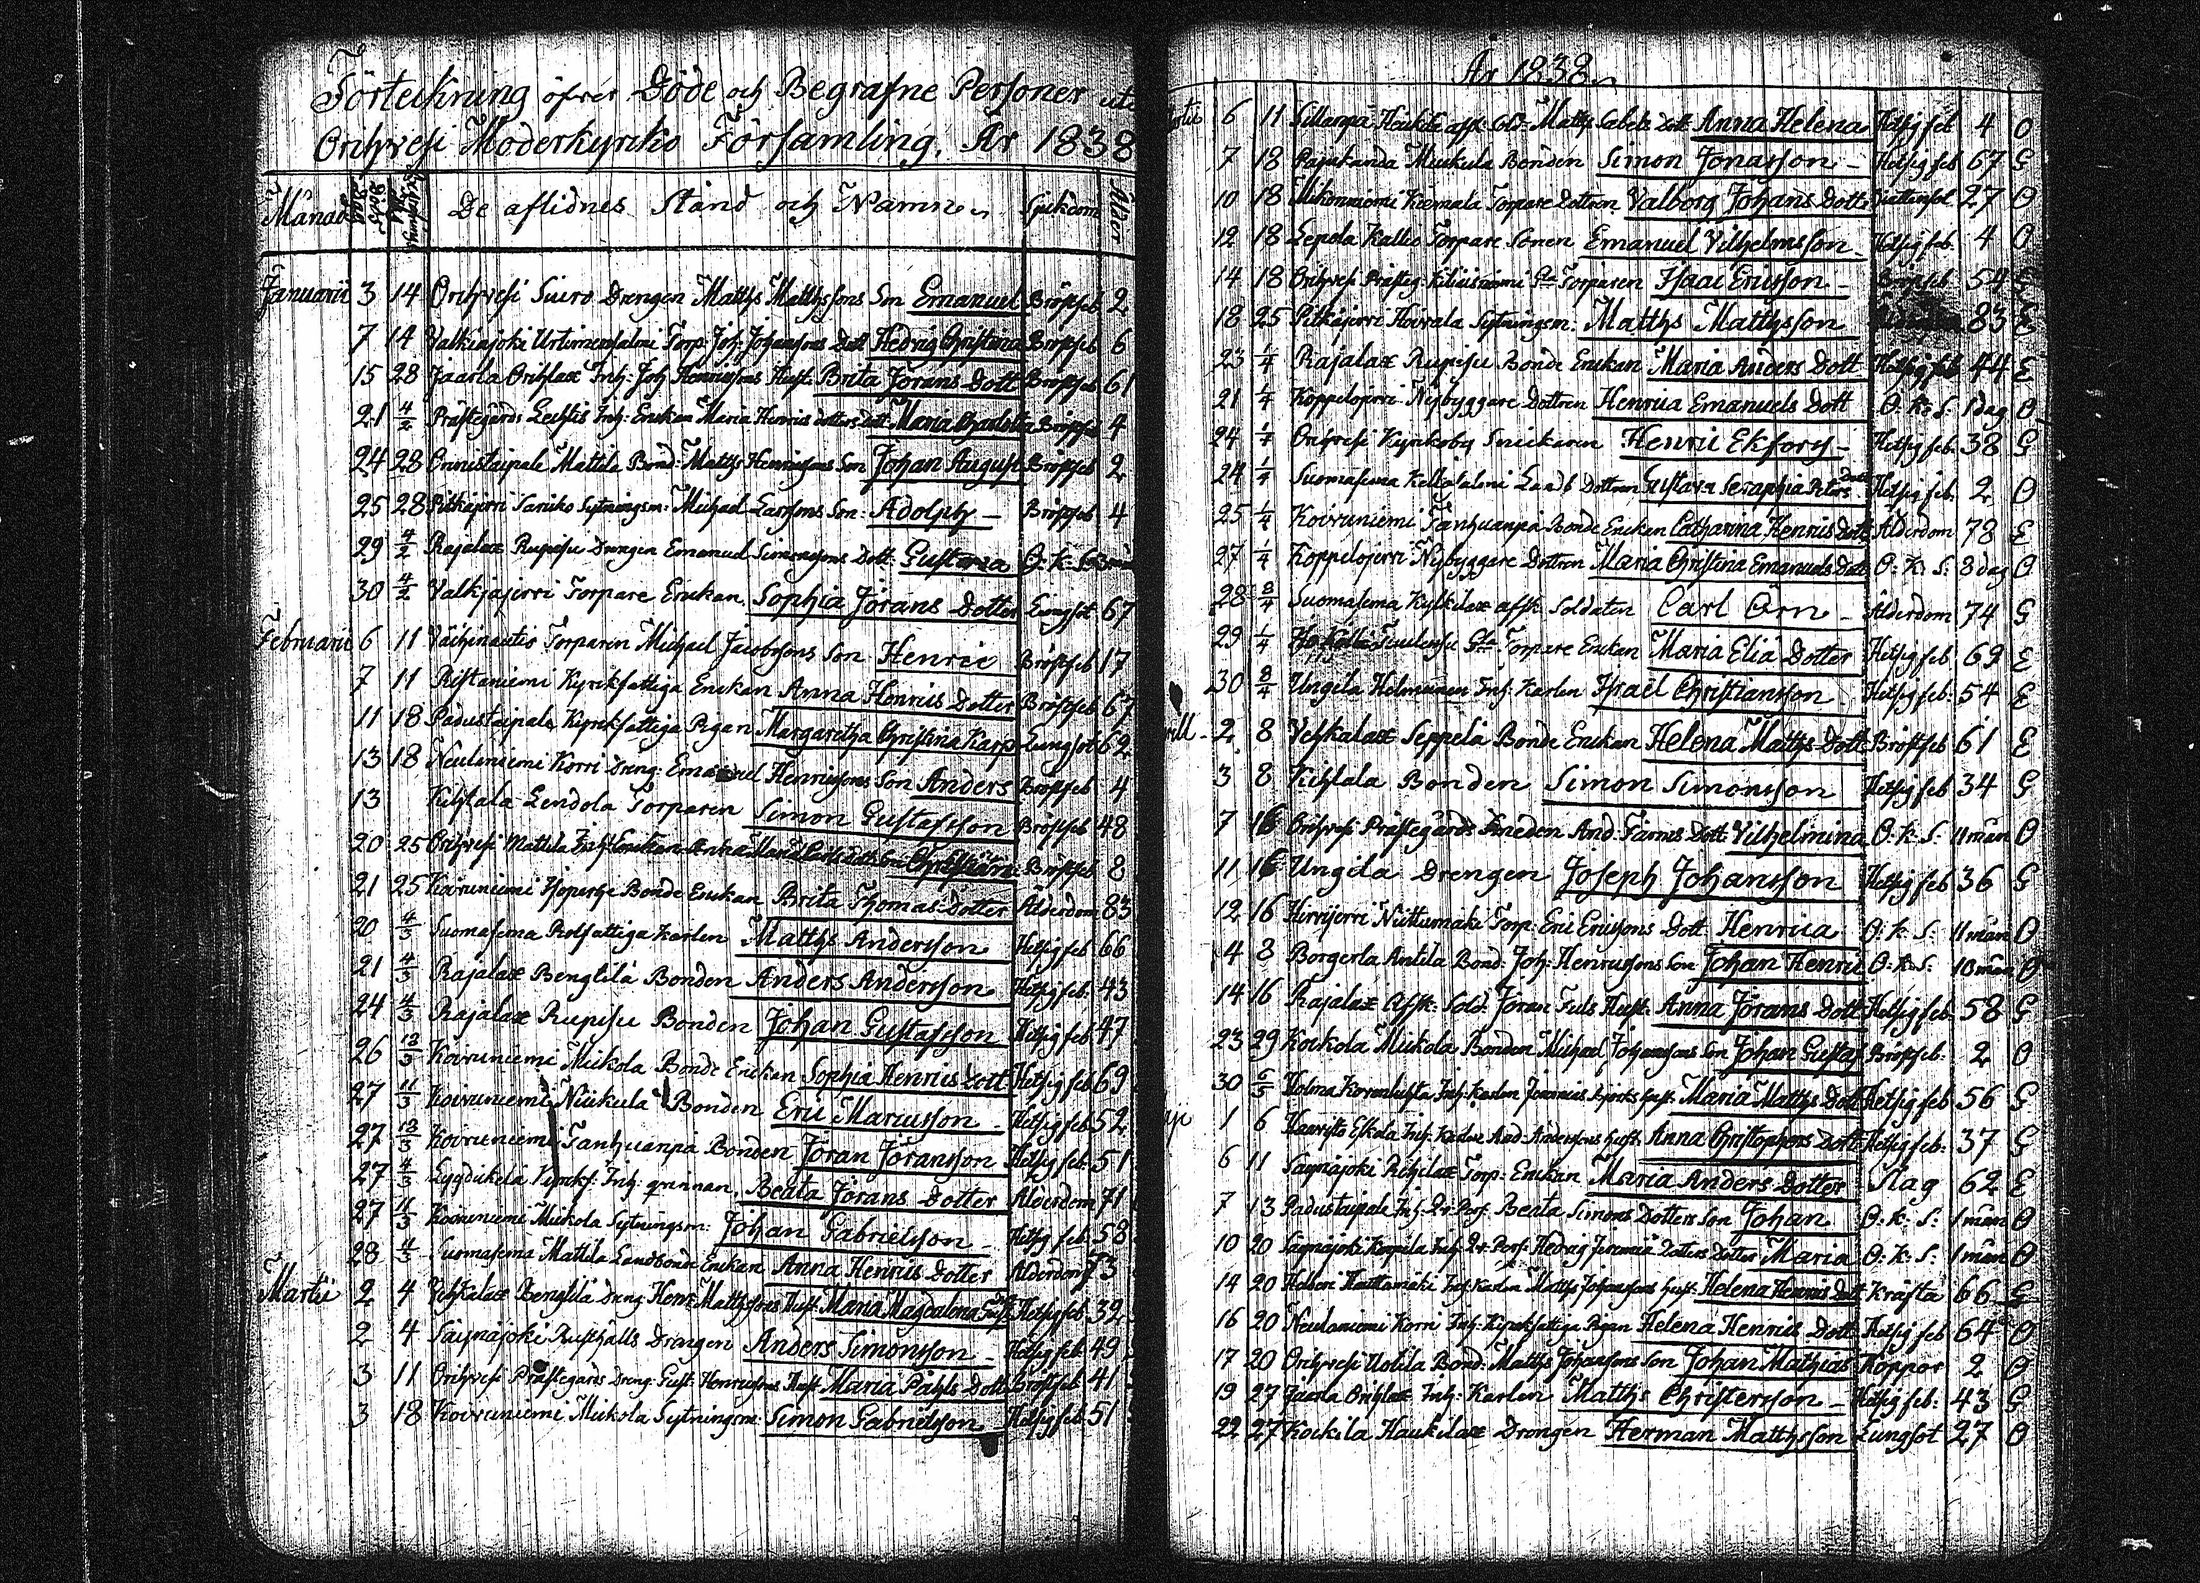 Förteckning öfver Döde och Begrafne Personer uti
Orihvesi Moderkyrko Församling. År 1838
Månad Döds Dag Begrafnings Dag De aflidnes Stånd och Namn Sjukdom Ålder
Januarii 3 14 Orihvesi Suero Drengen Matths Matthssons Son Emanuel Bröstfeb 2
7 14 Valkiajoki Torp: Joh: Johanssons Dott Hedvig Christina Bröstfeb 6
15 28 Jaarla Orihlax Inh: Joh Henricssons Hust: Brita Jörans Dott Bröstfeb 61
21 4/2 Prästegårds Inh: Enckan Maria Henrics dotters dott Maria Charlotta Bröstfeb 4
24 28 Onnistaipale Mattila Bond: Matths Henricssons Son Johan August Bröstfeb 2
25 28 Pitkäjervi Sytningsm: Michael Larssons Son: Adolph – Bröstfeb 4
29 4/2 Rajalax Rupisu Drengen Emanuel Simonssons Dott: Gustava O: K: S:
30 4/2 Valkjajärvi Torpare Enckan Sophia Jörans Dotter Lungsot 67
Februarii 6 11 Torparen Michael Jacobssons Son Henric Bröstfeb 17
7 11 Ristaniemi Kyrckfattiga Enckan Anna Henrics Dotter Bröstfeb 67
11 18 Padustaipale Kyrckfattiga Pigan Margaretha Christina Karp Lungsot 62
13 18 Neuleniemi Korri Dreng: Emanuel Henricssons Son Anders Bröstfeb 4
13 Kihlala Lendola Torparen Simon Gustafsson Bröstfeb 48
20 25 Orihvesi Mattila Bröstfeb 8
21 25 Koivuniemi Bonde Enckan Brita Thomas Dotter Ålderdom 83
20 4/3 Suomasema Rotfattiga Karlen Matths Andersson Hetsig feb 66
21 4/3 Rajalax Bengtilä Bonden Anders Andersson Hetsig feb: 43
24 4/3 Rajalax Rupisu Bonden Johan Gustafsson Hetsig feb 47
26 Koivuniemi Mickola Bonde Enckan Sophia Henrics Dott Hetsig feb 69
27 11/3 Koivuniemi Nickula Bonden Eric Maricsson – Hetsig feb 52
27 Koivuniemi Tanhuanpä Bonden Jöran Jöransson Hetsig feb: 51
27 4/3 Kyrckf: Inh: qvinnan, Beata Jörans Dotter Ålderdom 71
27 11/3 Koivuniemi Mickola Sytningsm: Johan Gabrielsson – Hetsig feb: 58
28 Suomasema Mattila Landbonde Enckan Anna Henrics Dotter Ålderdom 73
Martii 2 4 Vehkalax Bengtilä Dreng Henr: Matthssons Hust: Maria Magdalena Hetsig feb 39
2 4 Säynäjoki Rusthålls Drengen Anders Simonsson – Hetsig feb: 49
3 11 Orihvesi Prästegårds Dreng: Gust: Henricssons Hust: Maria Påhls Dott Bröstfeb: 41
3 18 Koivuniemi Mickola Sytningsm: Simon Gabrielsson Hetsig feb: 51
År 1838
6 11 Sillanpä afsk: Sold: Matths dott: Anna Helena Hetsig feb 4 O
7 18 Pajukanda Mickula Bonden Simon Jonasson – Hetsig feb 67 G
10 18 Torpare Dottren Valborg Johans Dott: 27 O
12 18 Lepola Kallio Torpare Sonen Emanuel Vilhelmsson Hetsig feb. 4 O
14 18 Orihvesi Prästeg: Torparen Isaac Ericsson – Bröstfeb 54 G
18 25 Pitkäjervi Hoivala Sytningsm: Matths Matthsson 83 E
23 1/4 Rajalax Rupisu Bonde Enckan Maria Anders Dott Hetsig feb 44 E
21 1/4 Koppelojervi Nybyggare Dottren Henrica Emanuels Dott O: K: S: 1 dag O
24 1/4 Orihvesi Kyrkoby Snickaren Henric Ekfors – Hetsig feb. 38 G
24 1/4 Suomasema Landb Dottren Gustava Seraphia Peters Dott Hetsig feb, 2 O
25 1/4 Koivuniemi Tanhuanpä Bonde Enckan Catharina Henrics Dott Ålderdom 78 E
27 1/4 Koppelojervi Nybyggare Dottren Maria Christina Emanuels Dott O: K: S: 8 dag O
28 8/4 Suomasema Kylkilax afsk: Soldaten Carl Örn – Ålderdom 74 G
29 1/4 Torpare Enckan Maria Eliä Dotter Hetsig feb 69 E
30 8/4 Ungila Helminen Inh: Karlen Israel Christiansson Hetsig feb: 54 E
Aprill – 2 8 Vehkalax Seppelä Bonde Enckan Helena Matths Dott Bröstfeb 61 E
3 8 Kihlala Bonden Simon Simonsson Hetsig feb 34 G
7 16 Orihvesi Prästegårds Smeden And: Dott: Vilhelmina O: K: S: 11 mån O
11 16 Ungila Drengen Joseph Johansson Hetsig feb 36 G
12 16 Hirvijervi Niittumäki Torp: Eric Ericssons Dott Henrica O: K: S: 11 mån O
4 8 Borgerla Antila Bond: Joh: Henricssons Son Johan Henric O: K: S: 10 mån O
14 16 Rajalax Afsk: Sold: Jöran Hust: Anna Jörans Dott Hetsig feb. 58 G
23 29 Kockola Mickola Bonden Michael Johanssons Son Johan Gustaf Bröstfeb: 2 O
30 6/5 Holma Inh: Karlen Hust: Maria Matths Dott Hetsig feb 56 G
1 6 Haaristo Eskola Inh: Karlen And: Anderssons hust: Anna Christophers Dott Hetsig feb: 37 G
6 11 Säynäjoki Torp: Enckan Maria Anders Dotter Slag 62 E
7 13 Padustaipale Inh: Qv: Pers: Beata Simons Dotters Son Johan O: K: S: 1 mån O
10 20 Säynäjoki Korpela Inh: Qv: Pers: Hedvig Jeremiä Dotters Dotter Maria O: K: S: 1 mån O
14 20 Inh: Karlen Matths Johanssons hust: Helena Henrics Dott Kräfta 66 G
16 20 Neulaniemi Korri Inh: Kyrckfattiga Pigan Helena Henrics Dott Hetsig feb 64 O
17 20 Orihvesi Uotila Bond: Matths Johanssons Son Johan Mathias Koppor 2 O
19 27 Jaarla Orihlax Inh: Karlen Matths Christersson – Hetsig feb: 43 G
22 27 Kockila Haukilax Drengen Herman Matthsson Lungsot 27 O